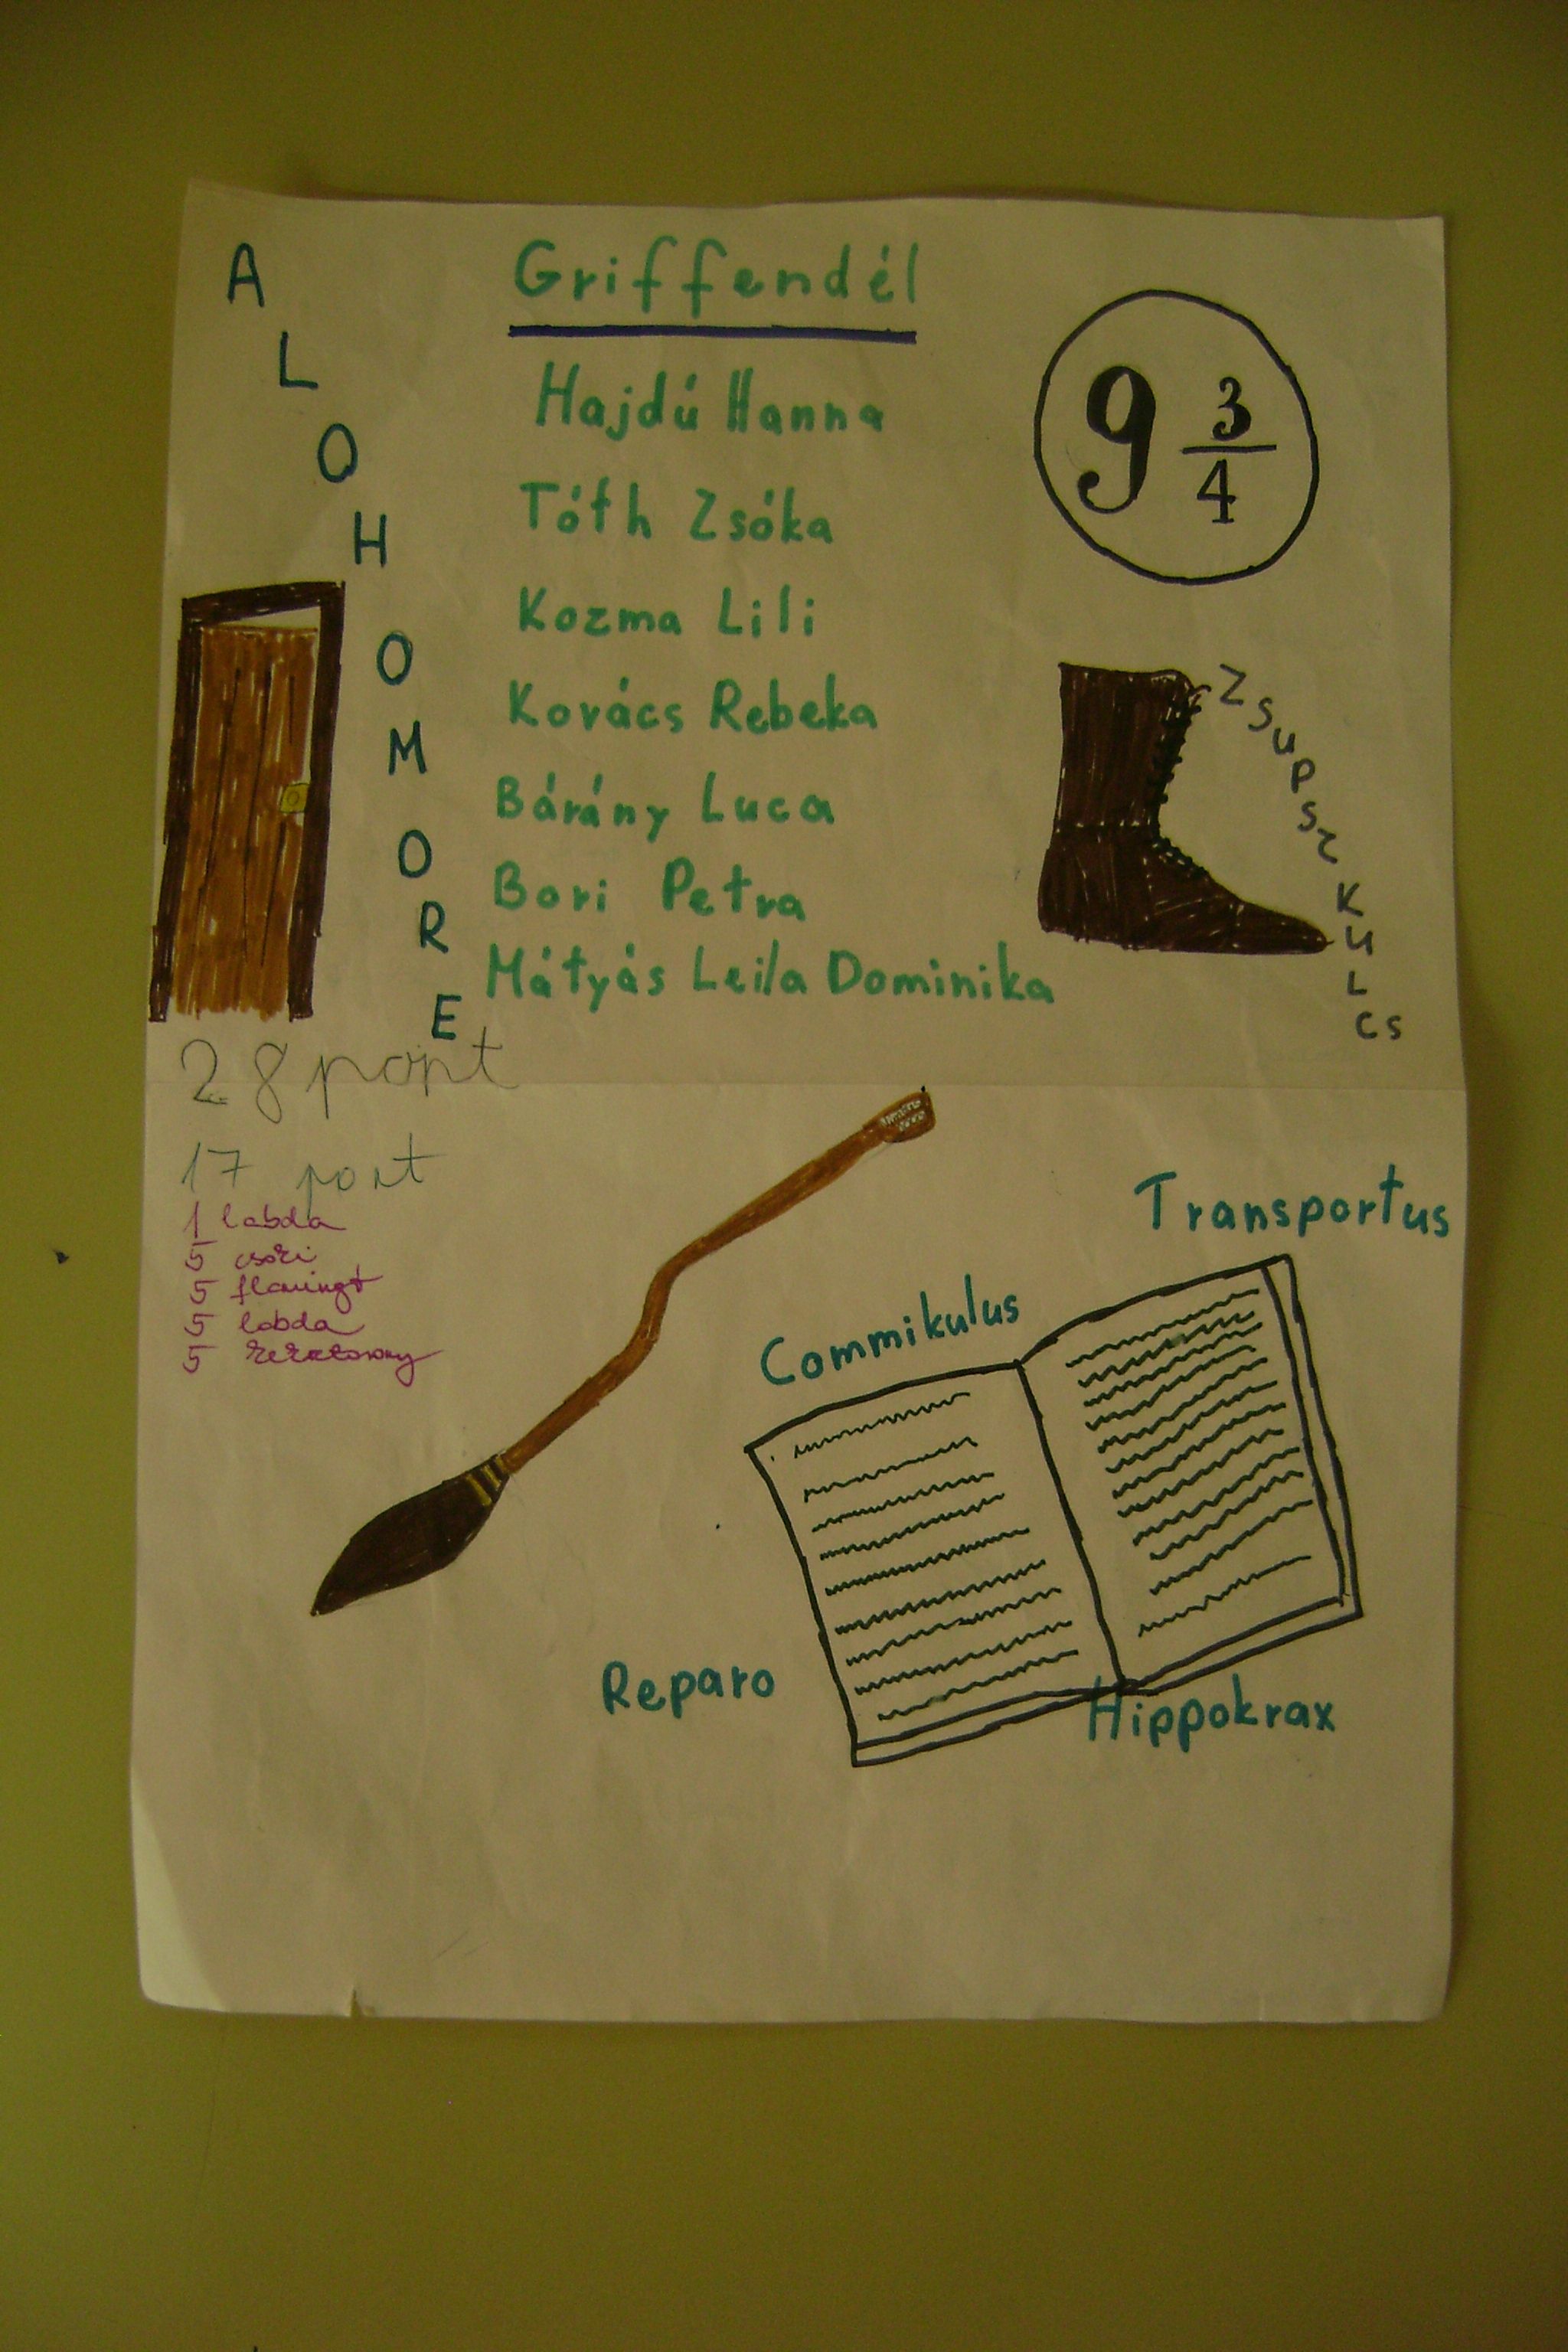 ALOHOMORE
Griffendél
Hajdú Hanna
Tóth Zsóka
Kozma Lili
Kovács Rebeka
Bárány Luca
Bori Petra
Mátyás Leila Dominika
9 3/4
Zsupsz
kulcs
28 pont
17 pont
1 labda
5 csőri
5 flamingó
5 labda
5
Transportus
Commikulus
Reparo
Hippokrax